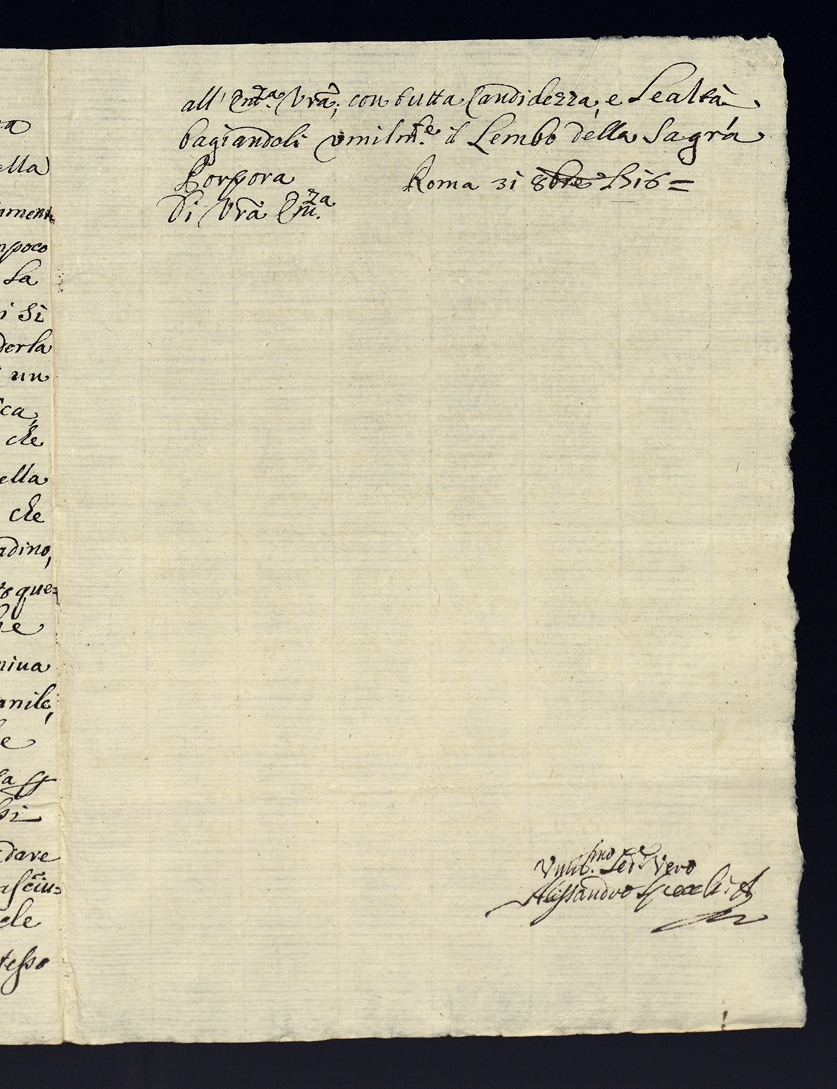 a
ella
ament
npoco
La
i Si
derla
un
ica,
che
ella
che
adino,
to que=
he
niua
anile,
e
sa
si
dare
asciu=
ele
tesso
all' Em.za Vrã, con tutta Candidezza, e Lealtà
bagiandoli vmilm.te il Lembo della Sagra
Porpora Roma 31 8bre 1716=
Di Vrã Em.za
Vmil.smo Ser.e Vero
Alessandro Specchi